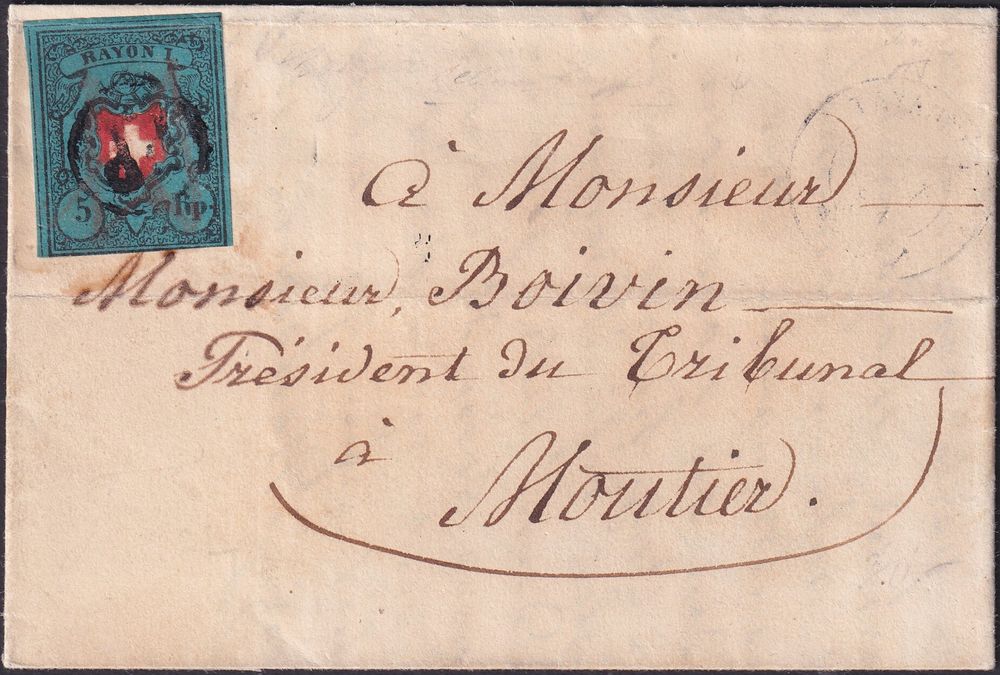 RAYON I.
5 Rp.
à Monsieur
Monsieur, Boivin
Président du Tribunal
à
Moutier.